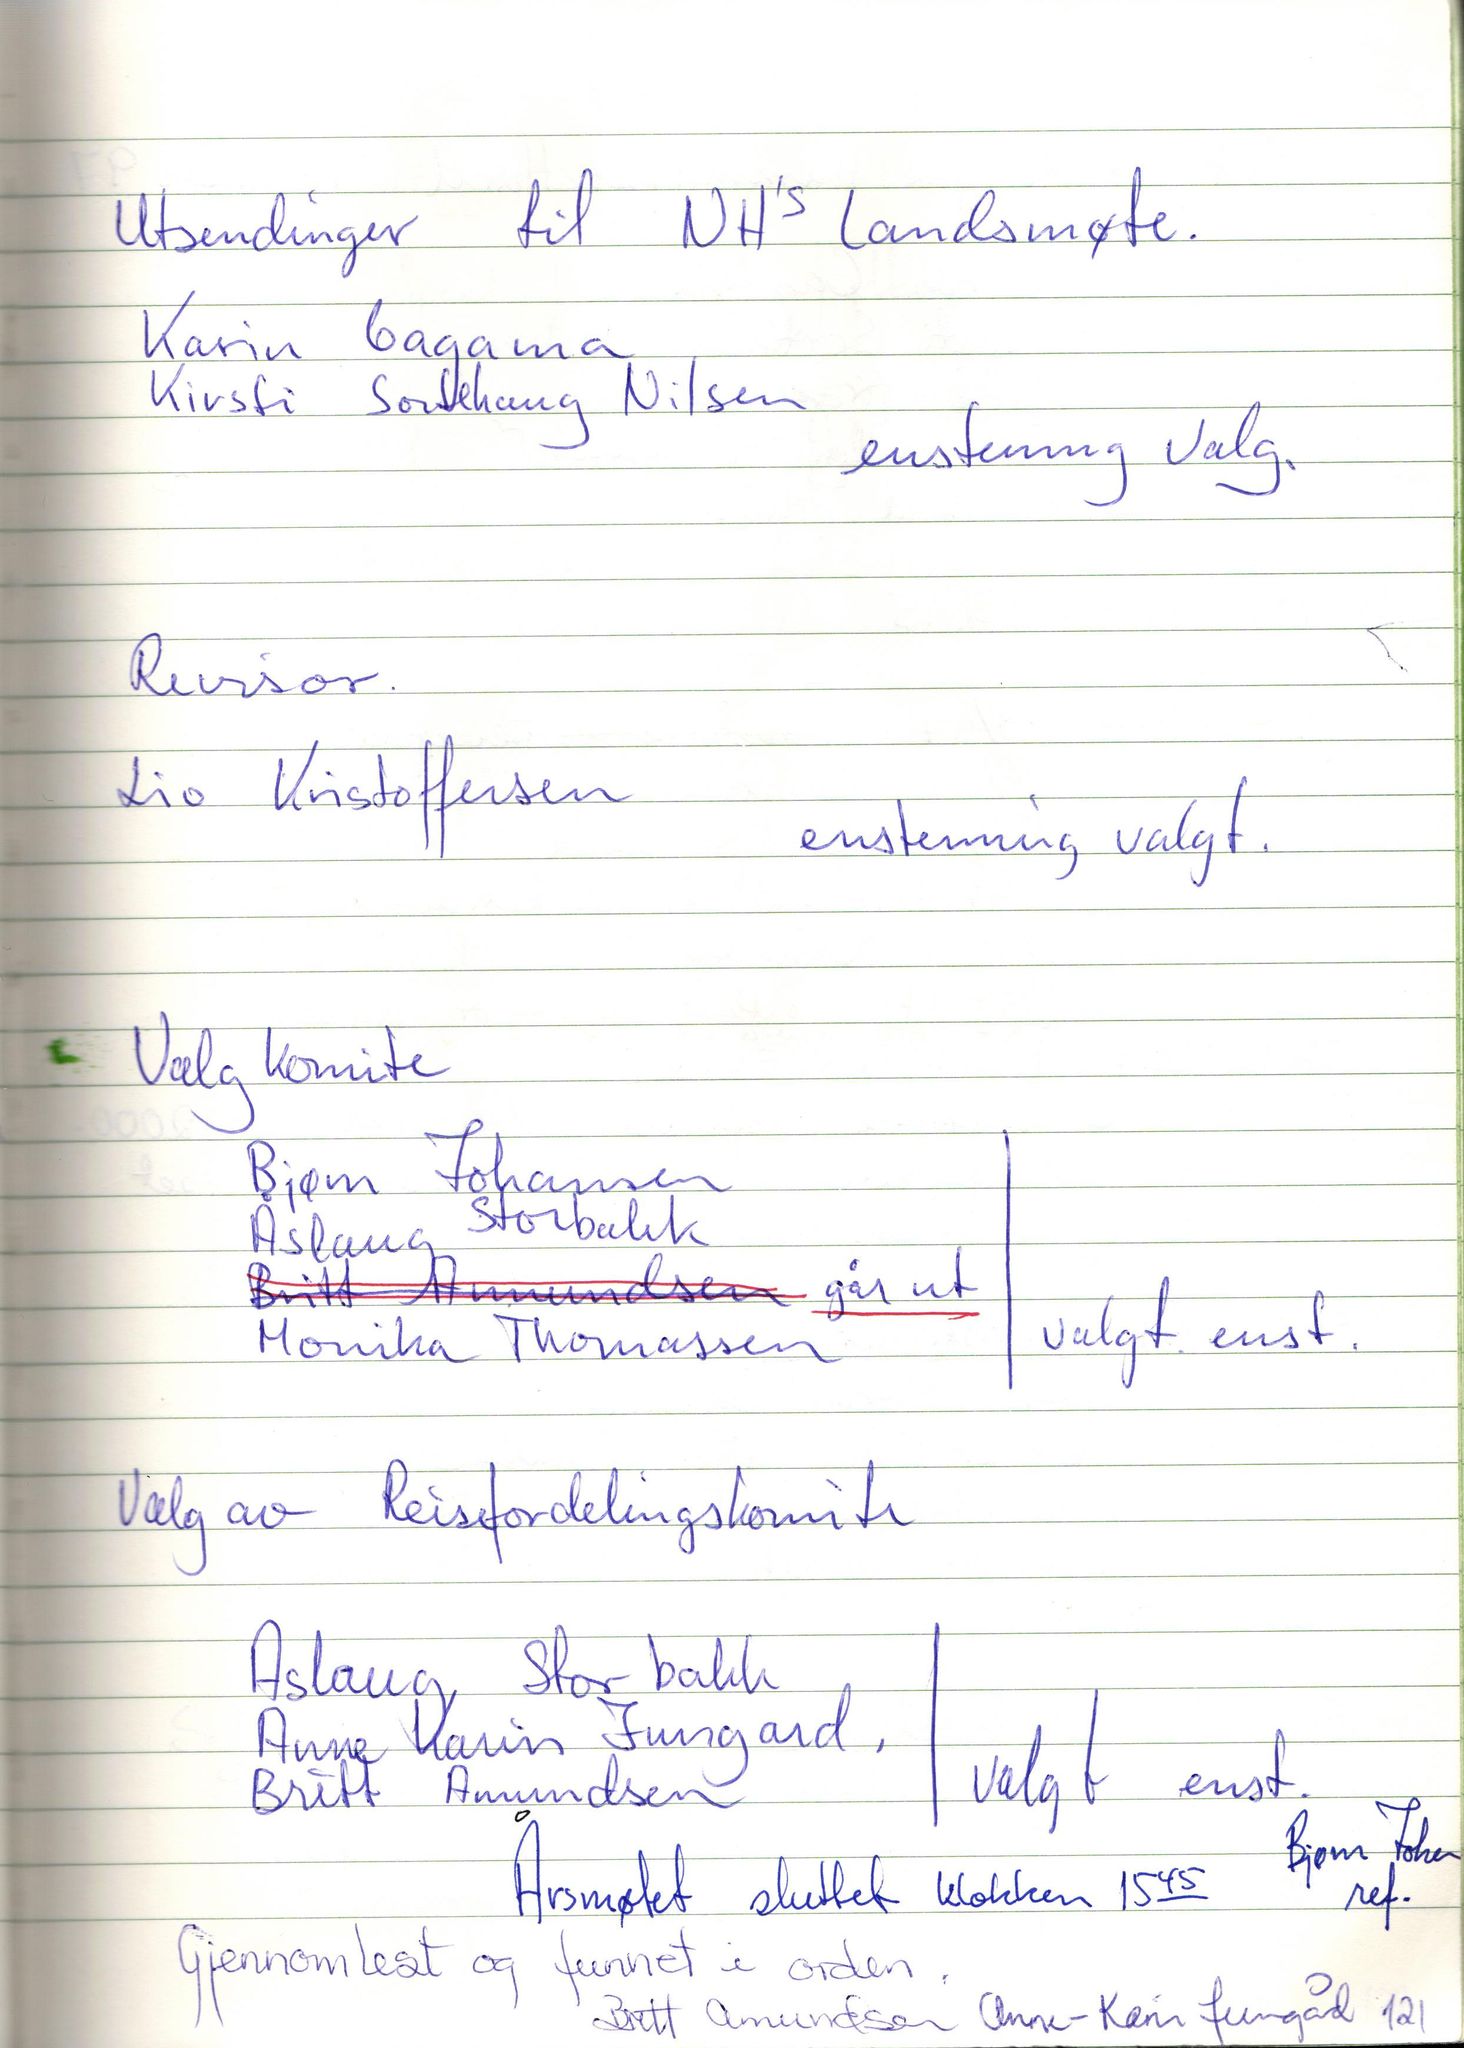 Utsendinger til NH's Landsmøte.
Karin Cagama
Kirsti Nilsen
enstemmig valg.
Revisor.
Lio Kristoffersen
enstemmig valgt.
Valgkomite
Bjørn Johansen
Åslaug Storbakk
Britt Amundsen går ut
Monika Thomassen
valgt enst.
Valg av Reisefordelingskomite
Aslaug Storbakk
Anne Karin Jungard,
Britt Amundsen
valgt enst.
Årsmøtet sluttet klokken 15 45
Bjørn Johan
ref.
Gjennomlest og funnet i orden.
Britt Amundsen Anne-Karin Jungård 121